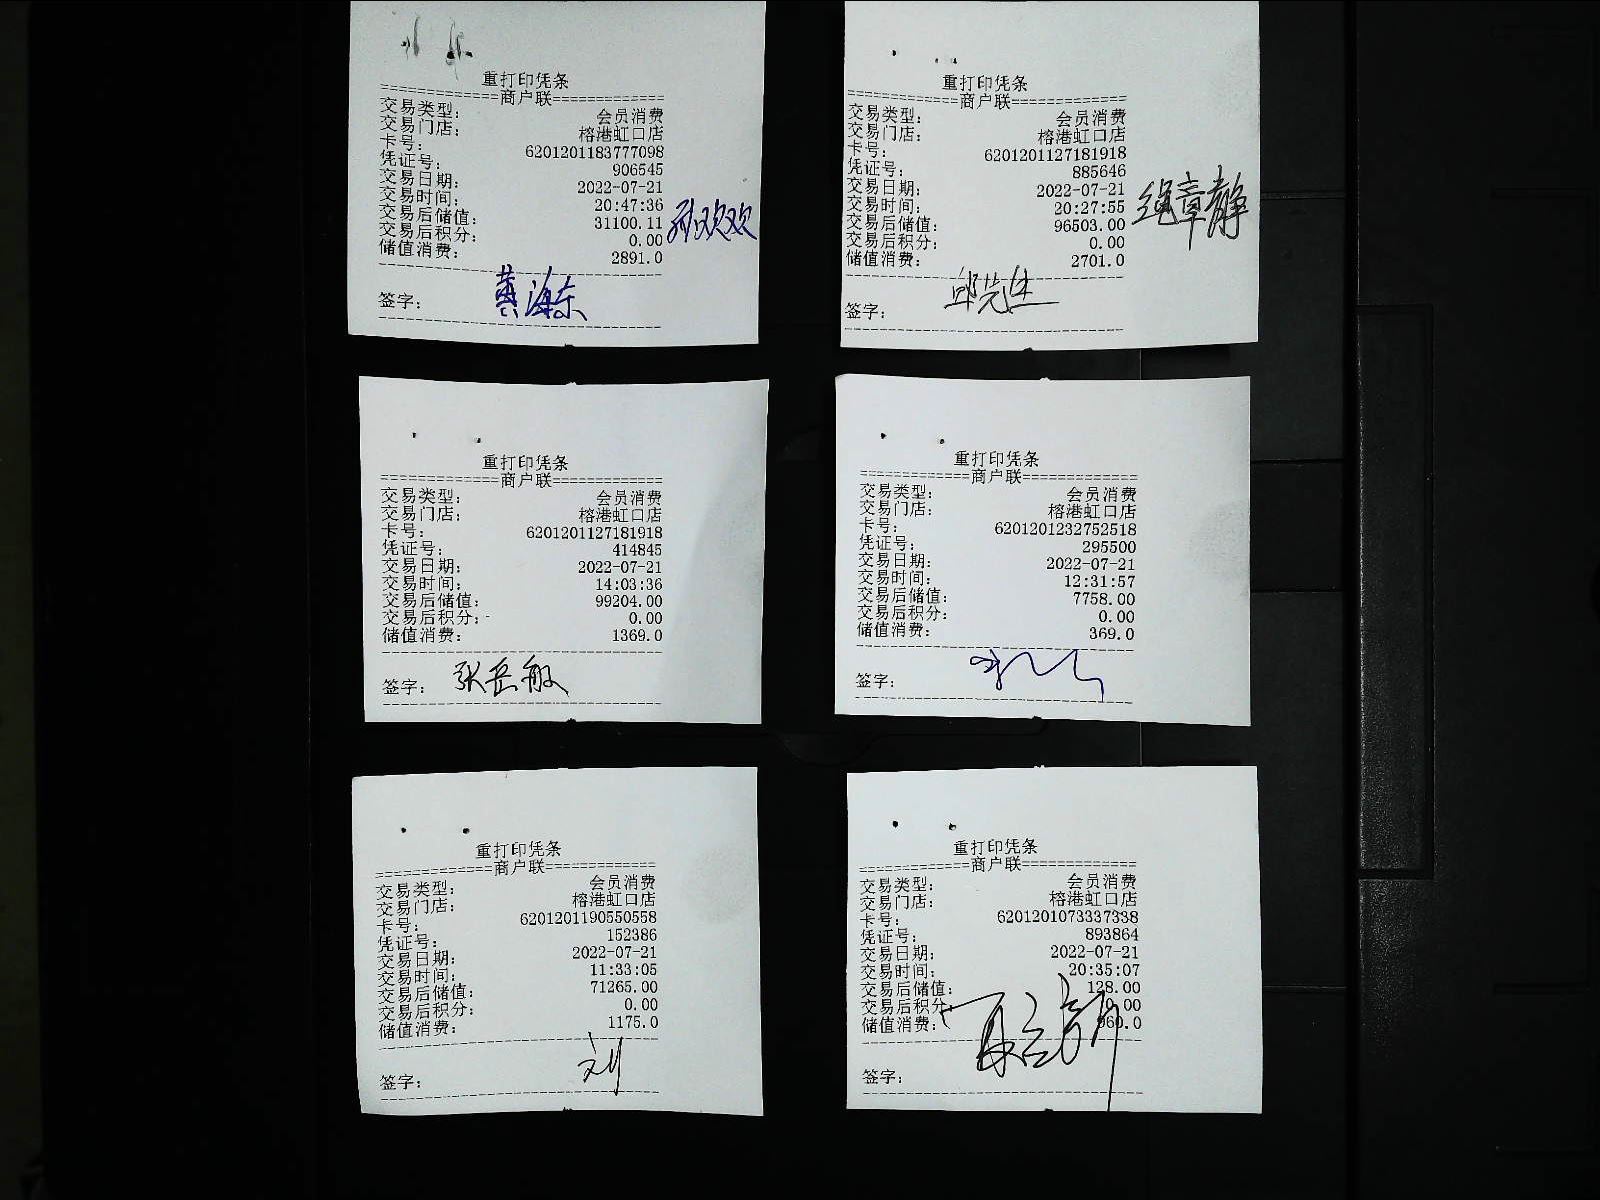 重打印凭条
============商户联============
交易类型： 会员消费
交易门店： 榕港虹口店
卡号： 6201201183777098
凭证号： 906545
交易日期： 2022-07-21
交易时间： 20:47:36
交易后储值： 31100.11
交易后积分： 0.00
储值消费： 2891.0
孙欢欢
签字： 黄海东
重打印凭条
============商户联============
交易类型： 会员消费
交易门店： 榕港虹口店
卡号： 6201201127181918
凭证号： 885646
交易日期： 2022-07-21
交易时间： 20:27:55
交易后储值： 96503.00
交易后积分： 0.00
储值消费： 2701.0
章静
签字： 邱先生
重打印凭条
============商户联============
交易类型： 会员消费
交易门店： 榕港虹口店
卡号： 6201201127181918
凭证号： 414845
交易日期： 2022-07-21
交易时间： 14:03:36
交易后储值： 99204.00
交易后积分： 0.00
储值消费： 1369.0
签字： 张岳敏
重打印凭条
============商户联============
交易类型： 会员消费
交易门店： 榕港虹口店
卡号： 6201201232752518
凭证号： 295500
交易日期： 2022-07-21
交易时间： 12:31:57
交易后储值： 7758.00
交易后积分： 0.00
储值消费： 369.0
签字：
重打印凭条
============商户联============
交易类型： 会员消费
交易门店： 榕港虹口店
卡号： 6201201190550558
凭证号： 152386
交易日期： 2022-07-21
交易时间： 11:33:05
交易后储值： 71265.00
交易后积分： 0.00
储值消费： 1175.0
签字： 刘
重打印凭条
============商户联============
交易类型： 会员消费
交易门店： 榕港虹口店
卡号： 6201201073337338
凭证号： 893864
交易日期： 2022-07-21
交易时间： 20:35:07
交易后储值： 128.00
交易后积分： 0.00
储值消费： 960.0
签字：